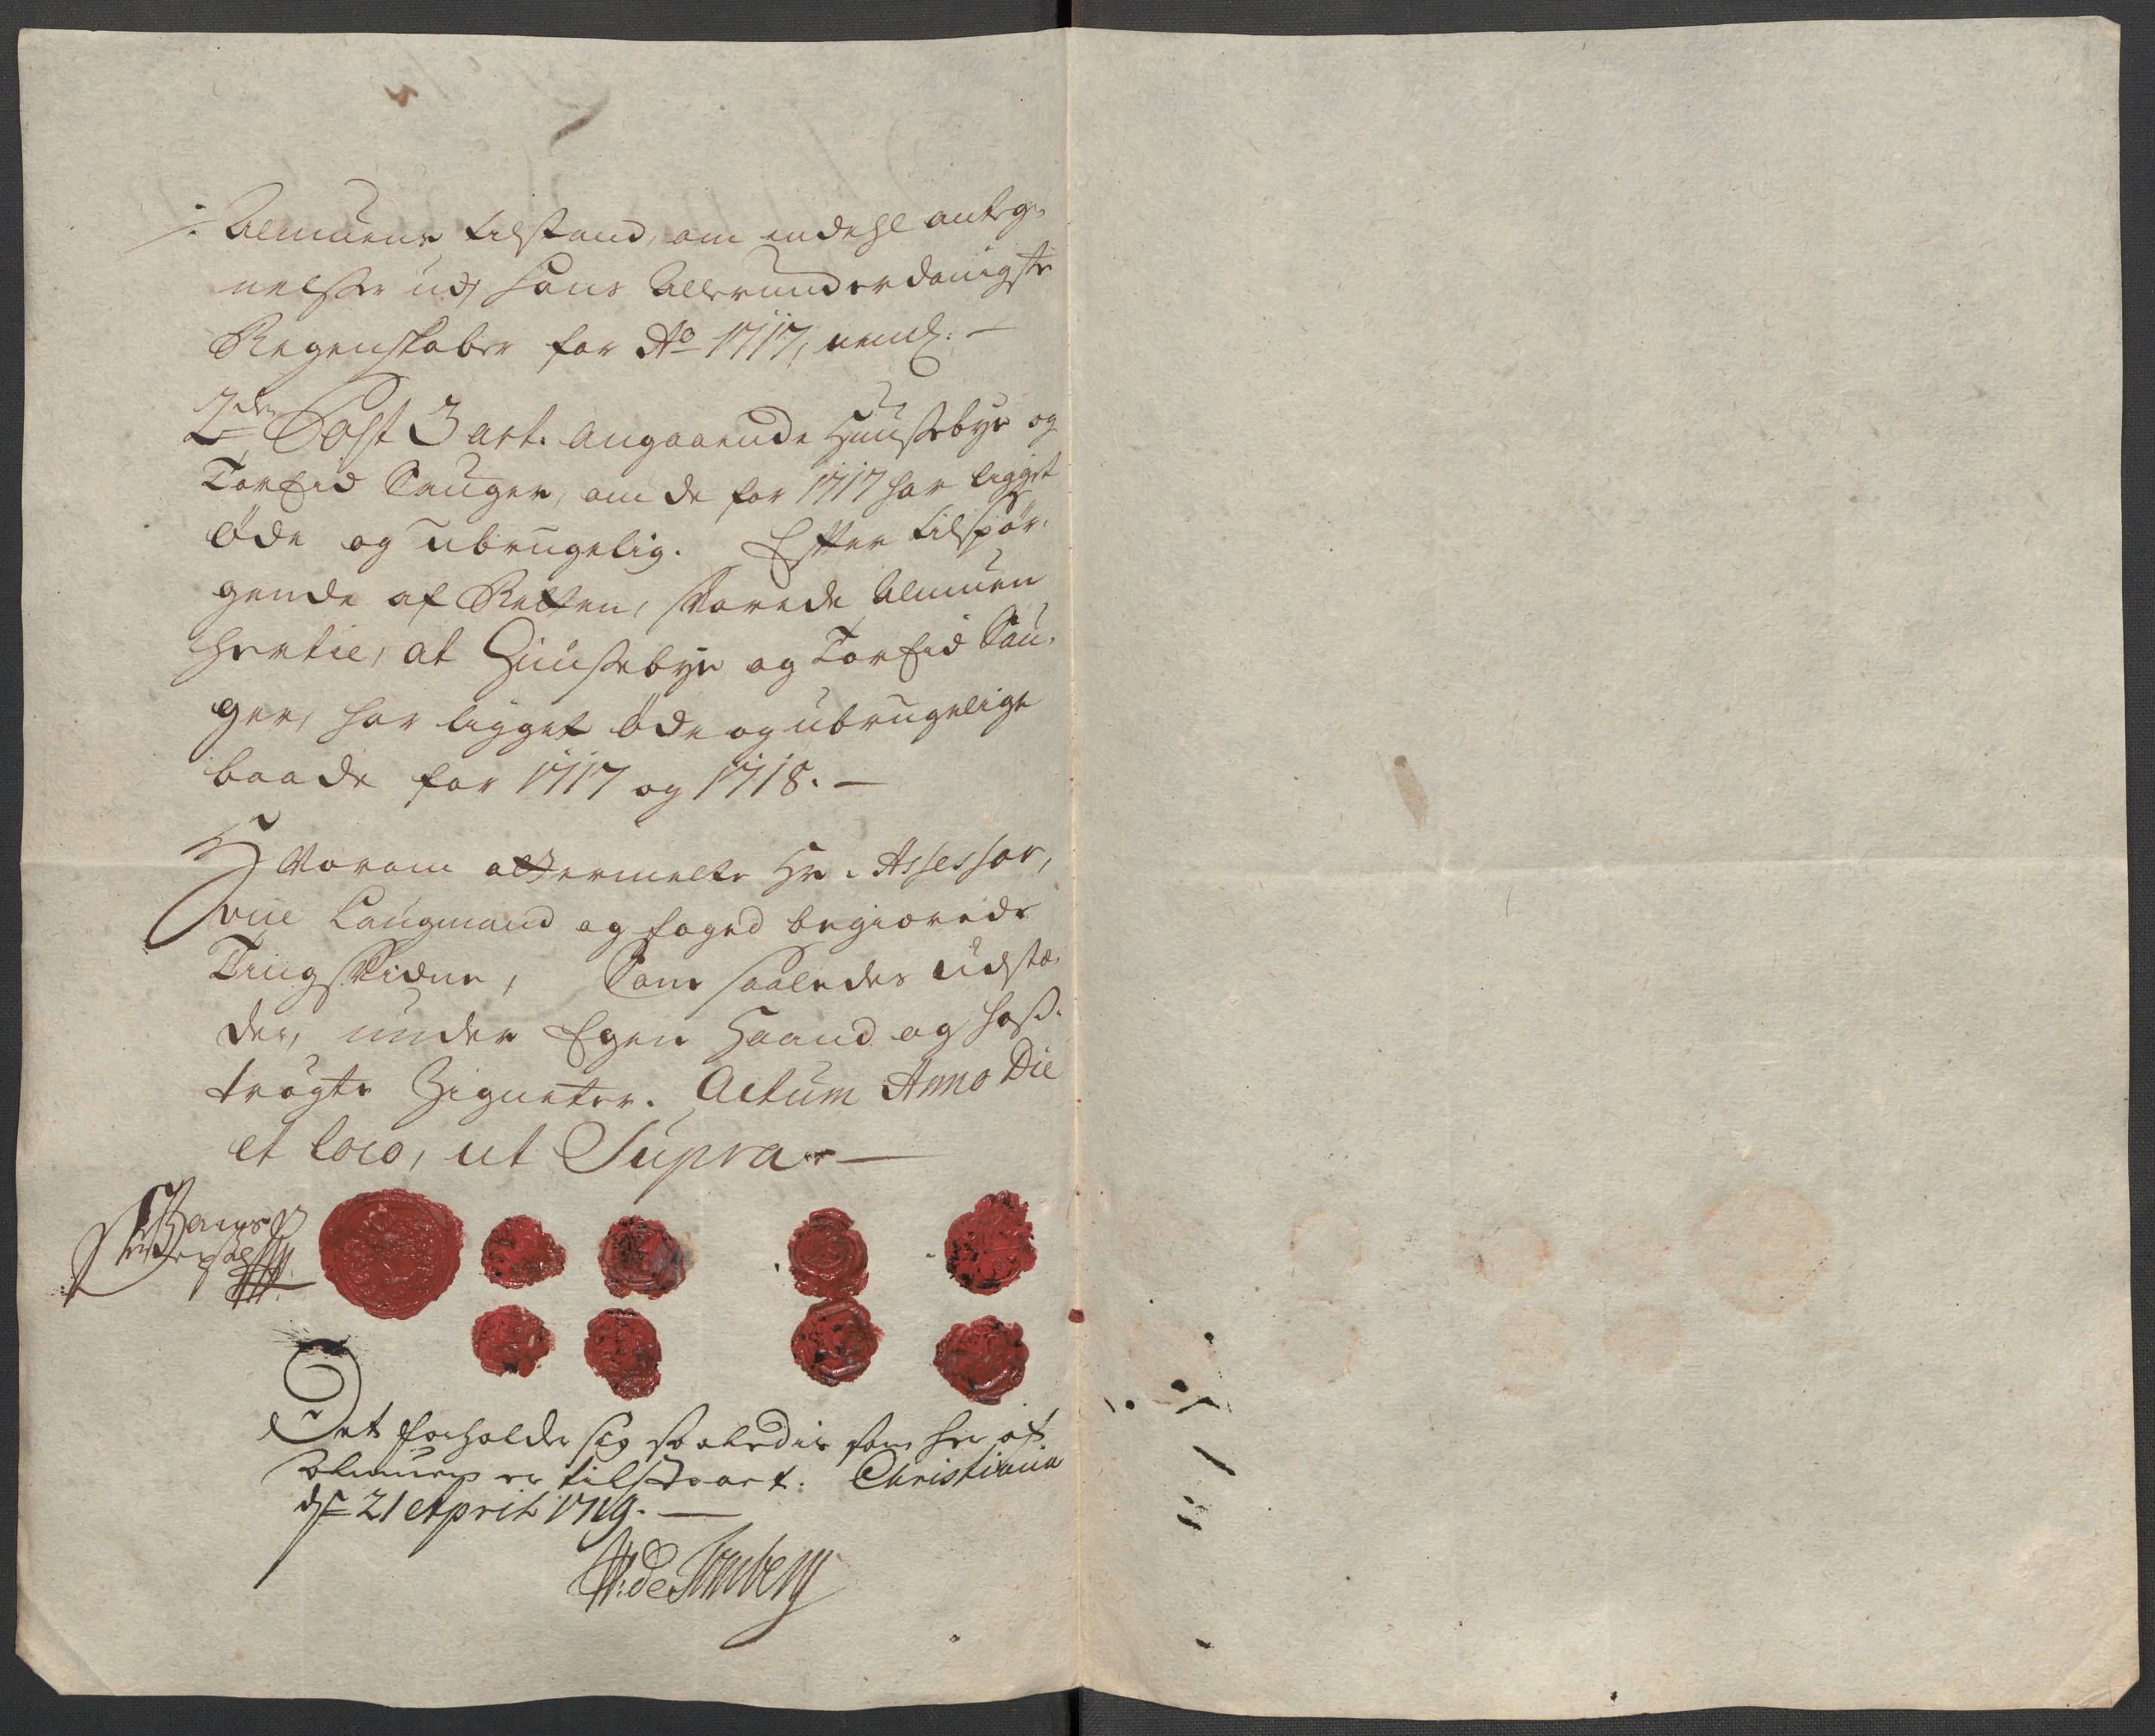 Almuens tilstand, om endehl anteg-
nelser udj hans Allerunderdanigste
Regenskaber for Ao 1717, neml: -
2den Post 3 art. angaaende Huusebye og
Torfid Sauger, om de for 1717 har ligget
øde og ubrugelig. Efter tilspør-
gende af Retten, svarede Almuen
hertil, at Huusebye og Torfid Sau-
ger, har ligget øde og ubrugelige
baade for 1717 og 1718. -
Hvorom altermelte Hr. Assessor,
viie Laugmand og foged begiærede
Tingsvidne, Som saaledes udstæ-
des, under Egen Haand og hoss-
trøgte Zigneter. Actum Anno Die
et loco, ut Supra -
Det forholder sig saaledis som her af
Almuen er tilsvaret. Christiania
dn 21 April 1719. -
H: de Tonsberg